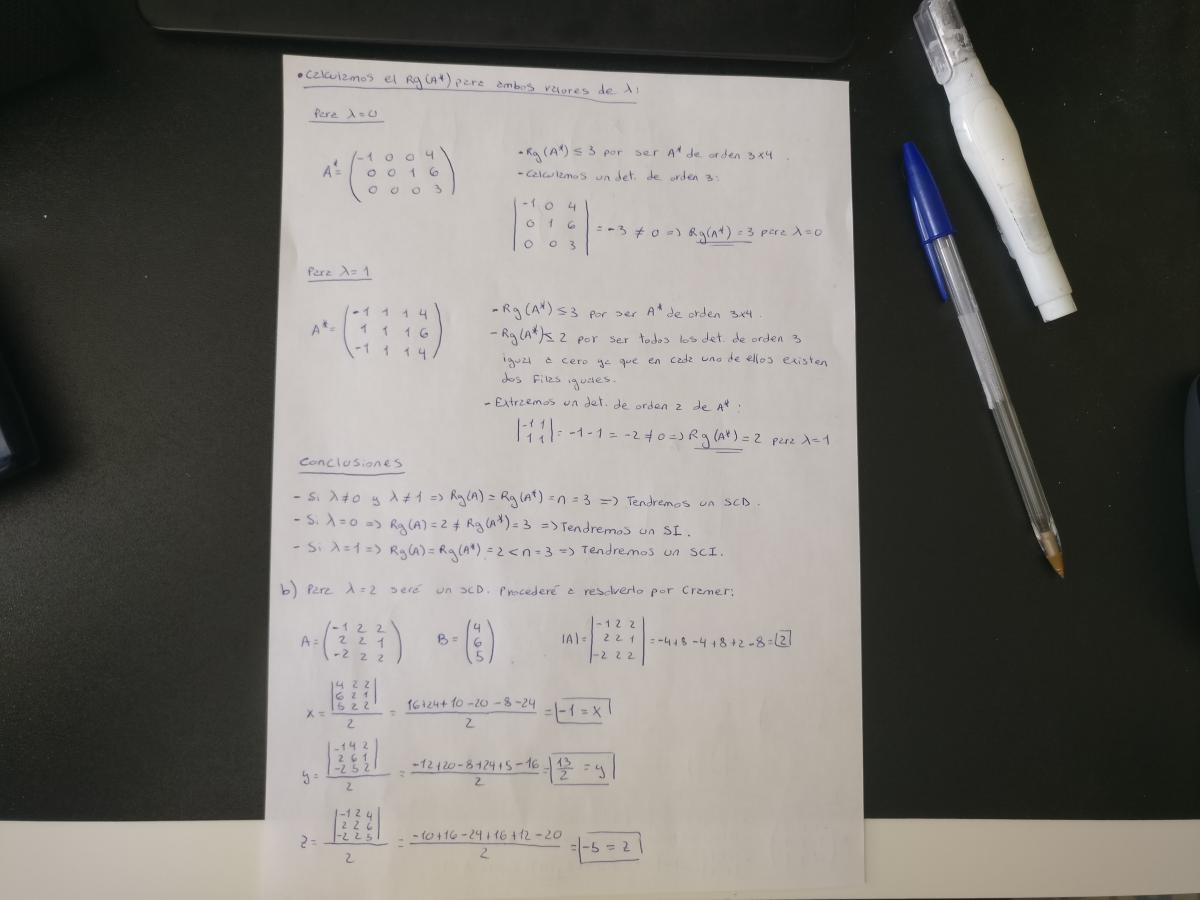 • Calculamos el Rg(A*) para ambos valores de λ:
Para λ=0
A* = (-1 0 0 4
0 0 1 6
0 0 0 3)
- Rg(A*) ≤ 3 por ser A* de orden 3x4.
- Calculamos un det. de orden 3:
|-1 0 4|
|0 1 6| = -3 ≠ 0 => Rg(A*) = 3 para λ=0
|0 0 3|
Para λ=1
A* = (-1 1 1 4
1 1 1 6
-1 1 1 4)
- Rg(A*) ≤ 3 por ser A* de orden 3x4.
- Rg(A*) ≤ 2 por ser todos los det. de orden 3
igual a cero ya que en cada uno de ellos existen
dos filas iguales.
- Extraemos un det. de orden 2 de A*:
|-1 1|
|1 1| = -1-1 = -2 ≠ 0 => Rg(A*) = 2 para λ=1
Conclusiones
- Si λ≠0 y λ≠1 => Rg(A) = Rg(A*) = n = 3 => Tendremos un SCD.
- Si λ=0 => Rg(A) = 2 ≠ Rg(A*) = 3 => Tendremos un SI.
- Si λ=1 => Rg(A) = Rg(A*) = 2 < n = 3 => Tendremos un SCI.
b) Para λ=2 será un SCD. Procederé a resolverlo por Cramer:
A = (-1 2 2
2 2 1
-2 2 2)
B = (4
6
5)
|A| = |-1 2 2|
|2 2 1| = -4+8-4+8+2-8 = 2
|-2 2 2|
|4 2 2|
|6 2 1|
|5 2 2|
x = / 2 = 16+24+10-20-8-24 / 2 = -1 = x
|-1 4 2|
|2 6 1|
|-2 5 2|
y = / 2 = -12+20-8+24+5-16 / 2 = 13/2 = y
|-1 2 4|
|2 2 6|
|-2 2 5|
z = / 2 = -10+16-24+16+12-20 / 2 = -5 = z